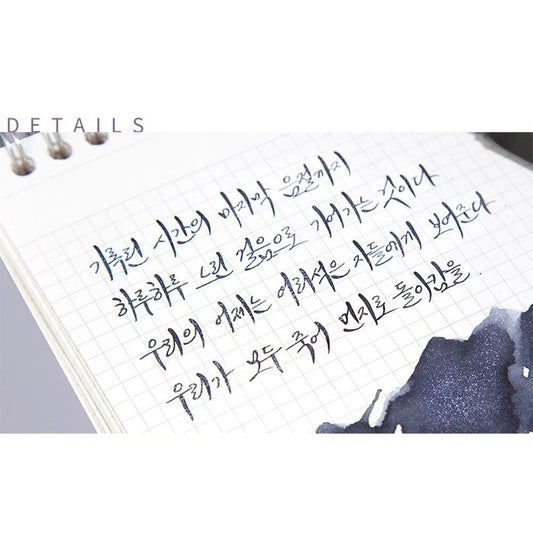 DETAILS
기록된 시간의 마지막 음절까지
하루하루 느린 걸음으로 기어가는 것이다
우리의 어제는 어리석은 자들에게 보여준다
우리가 모두 죽어 먼지로 돌아감을.